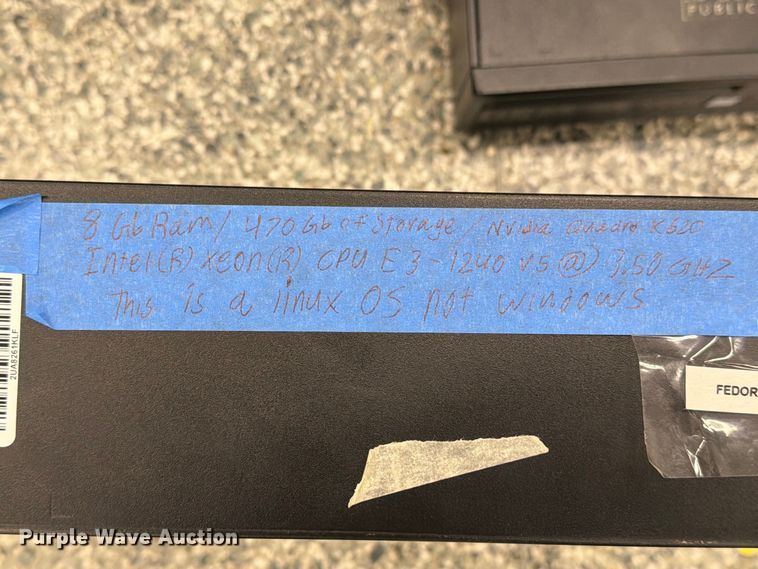 PUBLIC
8 Gb Ram / 470 Gb of Storage / Nvidia Quadro K620
Intel(R) Xeon(R) CPU E3-1240 v5 @ 3.50 GHZ
This is a linux OS not windows
2UA8261KLF
FEDOR
Purple Wave Auction